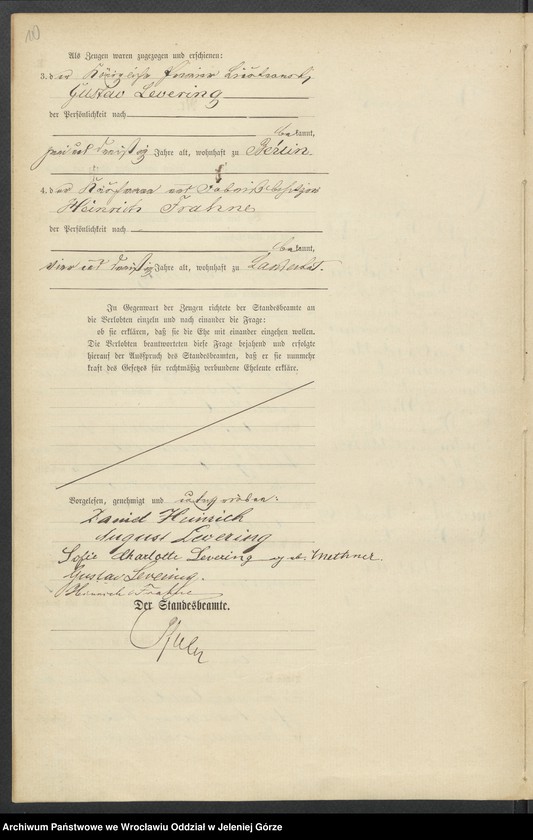 Als Zeugen waren zugezogen und erschienen:
3. der Königliche Premier Lieutenant
Gustav Levering
der Persönlichkeit nach
bekannt,
zwei und dreißig Jahre alt, wohnhaft zu Berlin
4. der Kaufmann und Fabrikbesitzer
Heinrich Frahne
der Persönlichkeit nach
bekannt,
vier und dreißig Jahre alt, wohnhaft zu
In Gegenwart der Zeugen richtete der Standesbeamte an
die Verlobten einzeln und nach einander die Frage:
ob sie erklären, daß sie die Ehe mit einander eingehen wollen.
Die Verlobten beantworteten diese Frage bejahend und erfolgte
hierauf der Ausspruch des Standesbeamten, daß er sie nunmehr
kraft des Gesetzes für rechtmäßig verbundene Eheleute erkläre.
Vorgelesen, genehmigt und unterschrieben:
Daniel Heinrich
August Levering
Sofie Charlotte Levering geb. Methner
Gustav Levering.
Heinrich Frahne
Der Standesbeamte.
Archiwum Państwowe we Wrocławiu Oddział w Jeleniej Górze